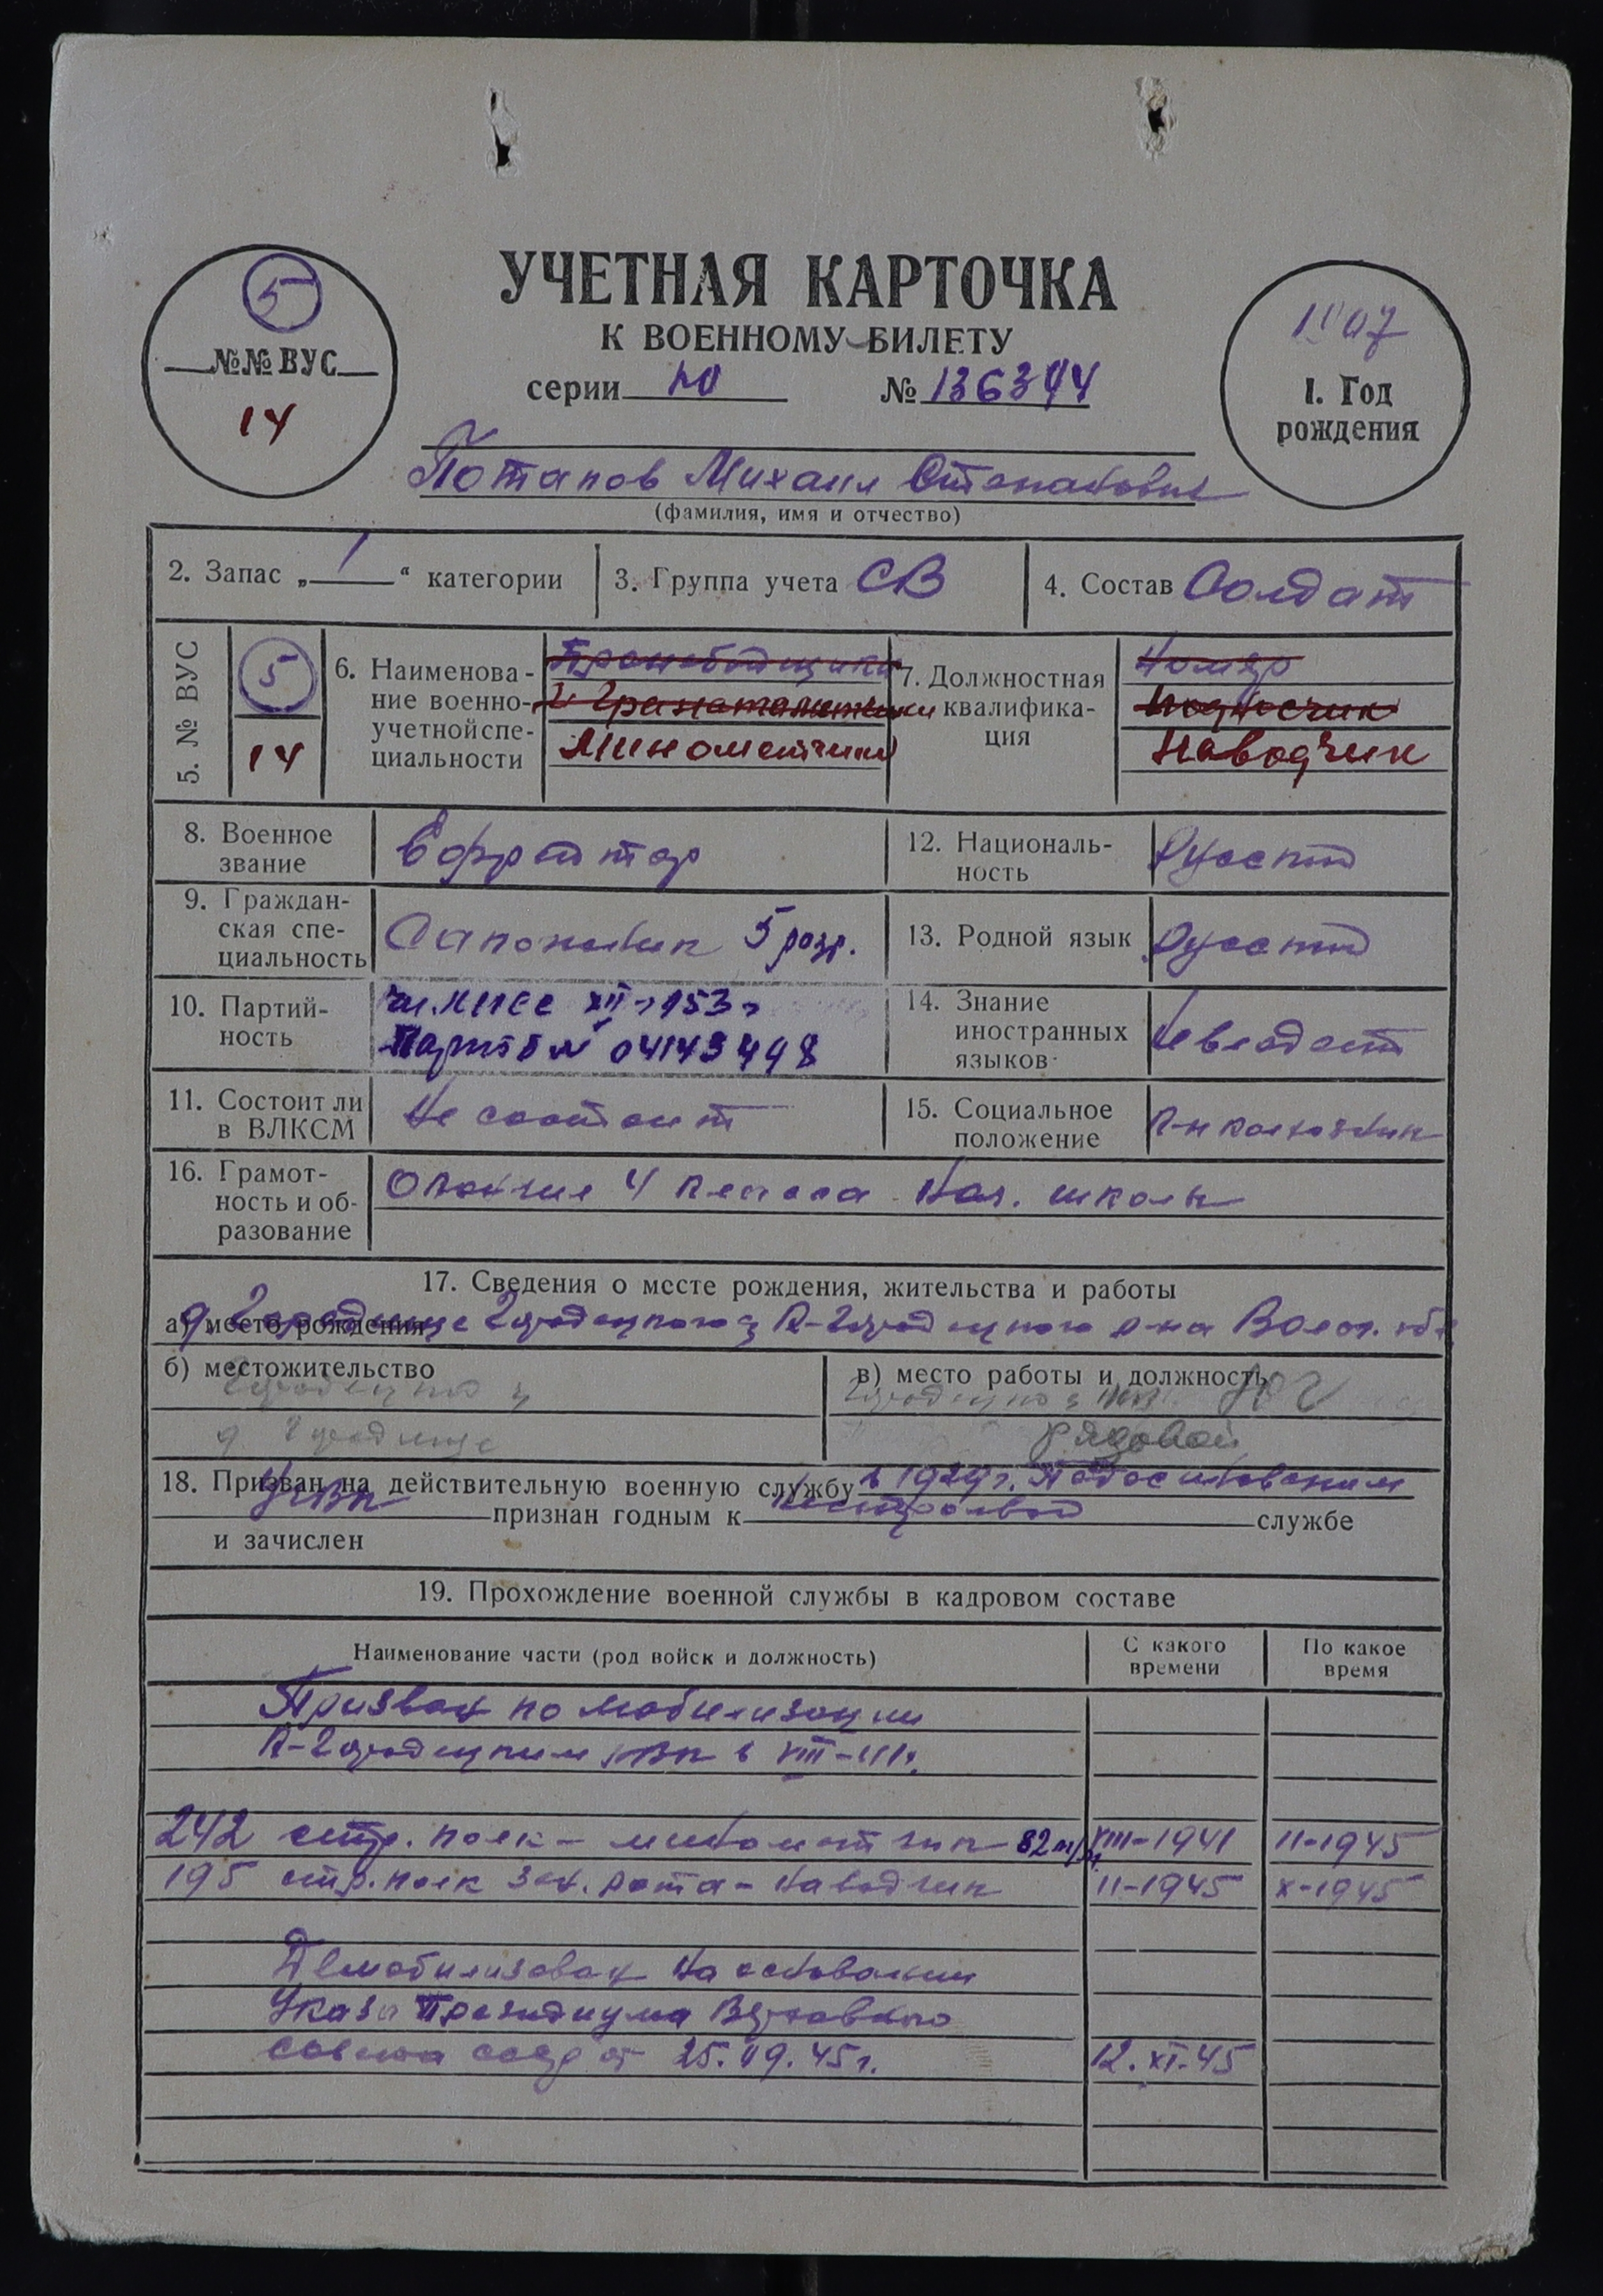 УЧЕТНАЯ КАРТОЧКА
К ВОЕННОМУ БИЛЕТУ
серии № 136344
5
№№ ВУС
14
1907
1. Год
рождения
Потапов Михаил Степанович
(фамилия, имя и отчество)
2. Запас „ 1 “ категории
3. Группа учета СВ
4. Состав Солдат
5. № ВУС
5
14
6. Наименова-
ние военно-
учетной спе-
циальности
Бронебойщики
и гранатометчики
Минометчики
7. Должностная
квалифика-
ция
Номер
подносчик
Наводчик
8. Военное
звание
Ефрейтор
12. Националь-
ность
Русский
9. Граждан-
ская спе-
циальность
Сапожник 5 разр.
13. Родной язык
Русский
10. Партий-
ность
Чл. КПСС XII-1953
Партб № 04143498
14. Знание
иностранных
языков
Не владеет
11. Состоит ли
в ВЛКСМ
Не состоит
15. Социальное
положение
К-н колхозник
16. Грамот-
ность и об-
разование
Окончил 4 класса нач. школы
17. Сведения о месте рождения, жительства и работы
а) место рождения
д. Городище Городецкого К-Городецкого р-на Волог. обл
б) местожительство
Городецкой
д. Городище
в) место работы и должность
рядовой
18. Призван на действительную военную службу в 1929 г.
признан годным к нестроевой службе
и зачислен
19. Прохождение военной службы в кадровом составе
Наименование части (род войск и должность)
С какого
времени
По какое
время
Призван по мобилизации
К-Городецким РВК в VIII-41 г.
242 стр. полк – минометчик 82 м/м VIII-1941 II-1945
195 стр. полк зен. рота – наводчик II-1945 X-1945
Демобилизован на основании
Указа Президиума Верховного
Совета СССР от 25.09.45 г. 12.XI.45